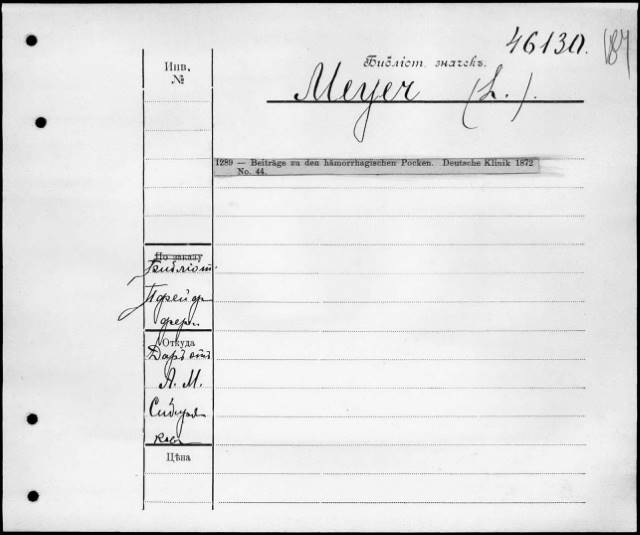 46130.
Инв.
№
Библіот. значекъ.
Meyer (L.).
1289 — Beiträge zu den hämorrhagischen Pocken. Deutsche Klinik 1872
No. 44.
По заказу
Библіот.
Откуда
Даръ отъ
А. М.
Цѣна